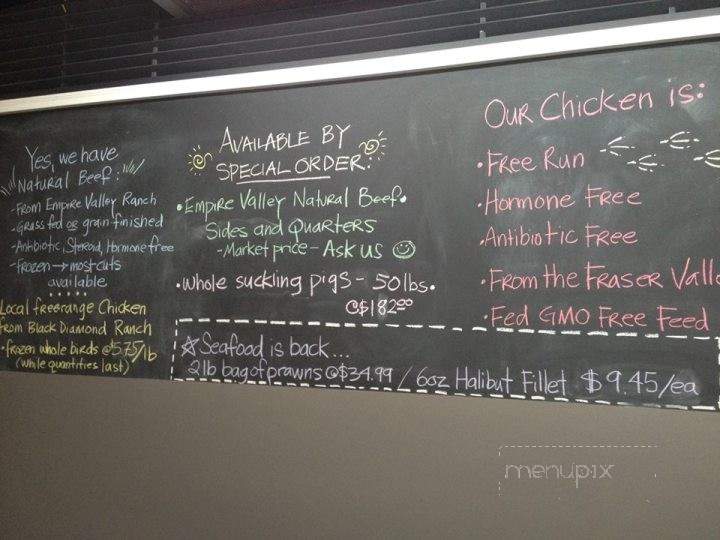 Yes, we have
Natural Beef:
-From Empire Valley Ranch
-Grass fed or grain finished
-Antibiotic, Steroid, Hormone free
-Frozen → most cuts
available
Local freerange Chicken
from Black Diamond Ranch
•frozen whole birds @5.75/lb
(while quantities last)
AVAILABLE BY
SPECIAL ORDER:
•Empire Valley Natural Beef•
Sides and Quarters
-Market price - Ask us ☺
•Whole suckling pigs - 50lbs.
@$182.00
☆Seafood is back...
2lb bag of prawns @$34.99 / 6oz Halibut Fillet $9.45/ea
OUR CHICKEN is:
•Free Run
•Hormone Free
•Antibiotic Free
•From the Fraser Valle
•Fed GMO Free Feed
menupix